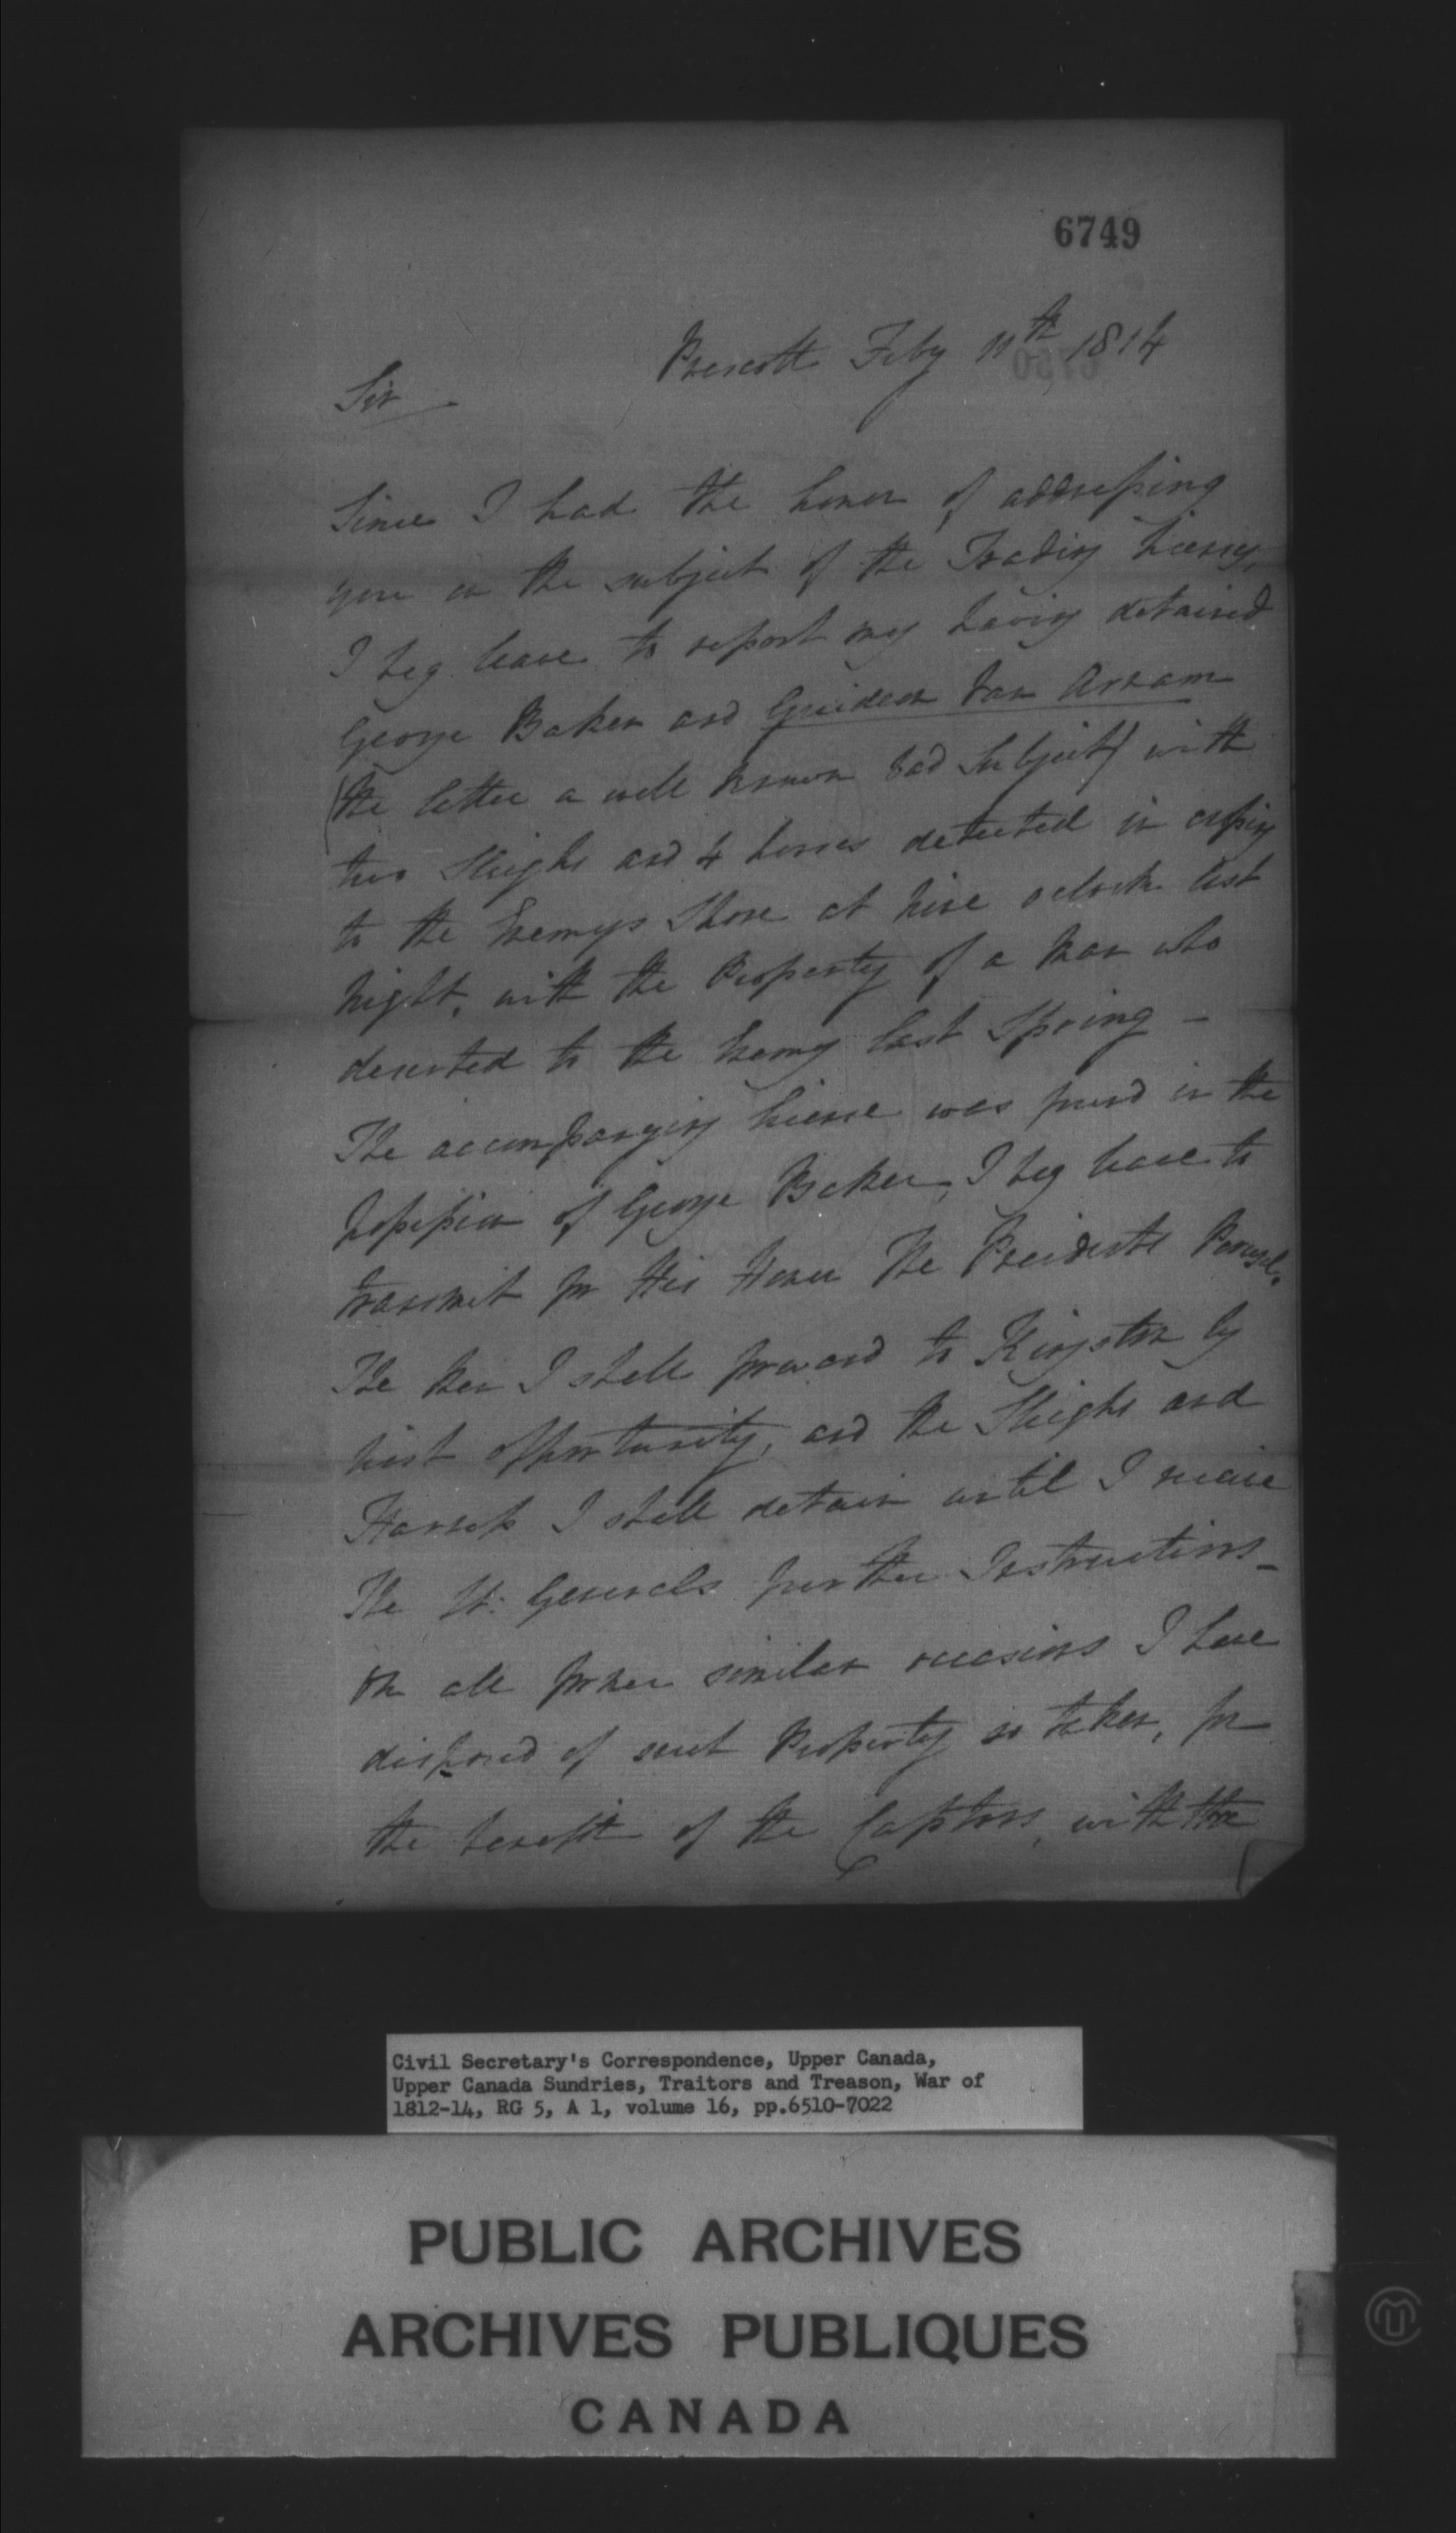 6749
Prescott Feby 11th 1814
Sir
Since I had the honor of addressing
you on the subject of the Trading
I beg leave to report my having detained
George Baker and Guideon Van Arnam
(the latter a well known bad Subject) with
two Sleighs and 4 horses detected in crossing
to the Enemys Shore at nine oclock last
night, with the Property of a Man who
deserted to the Enemy last Spring -
The accompanying license was found in the
possession of George Baker, I beg leave to
transmit for His Honor The Presidents Perusal.
The Men I shall forward to Kingston by
first opportunity, and the Sleighs and
Harness I shall detain until I receive
The Lt: Generals further Instructions -
On all former similar occasions I have
disposed of such Property so taken, for
the benefit of the Captors, with the
Civil Secretary's Correspondence, Upper Canada,
Upper Canada Sundries, Traitors and Treason, War of
1812-14, RG 5, A 1, volume 16, pp.6510-7022
PUBLIC ARCHIVES
ARCHIVES PUBLIQUES
CANADA